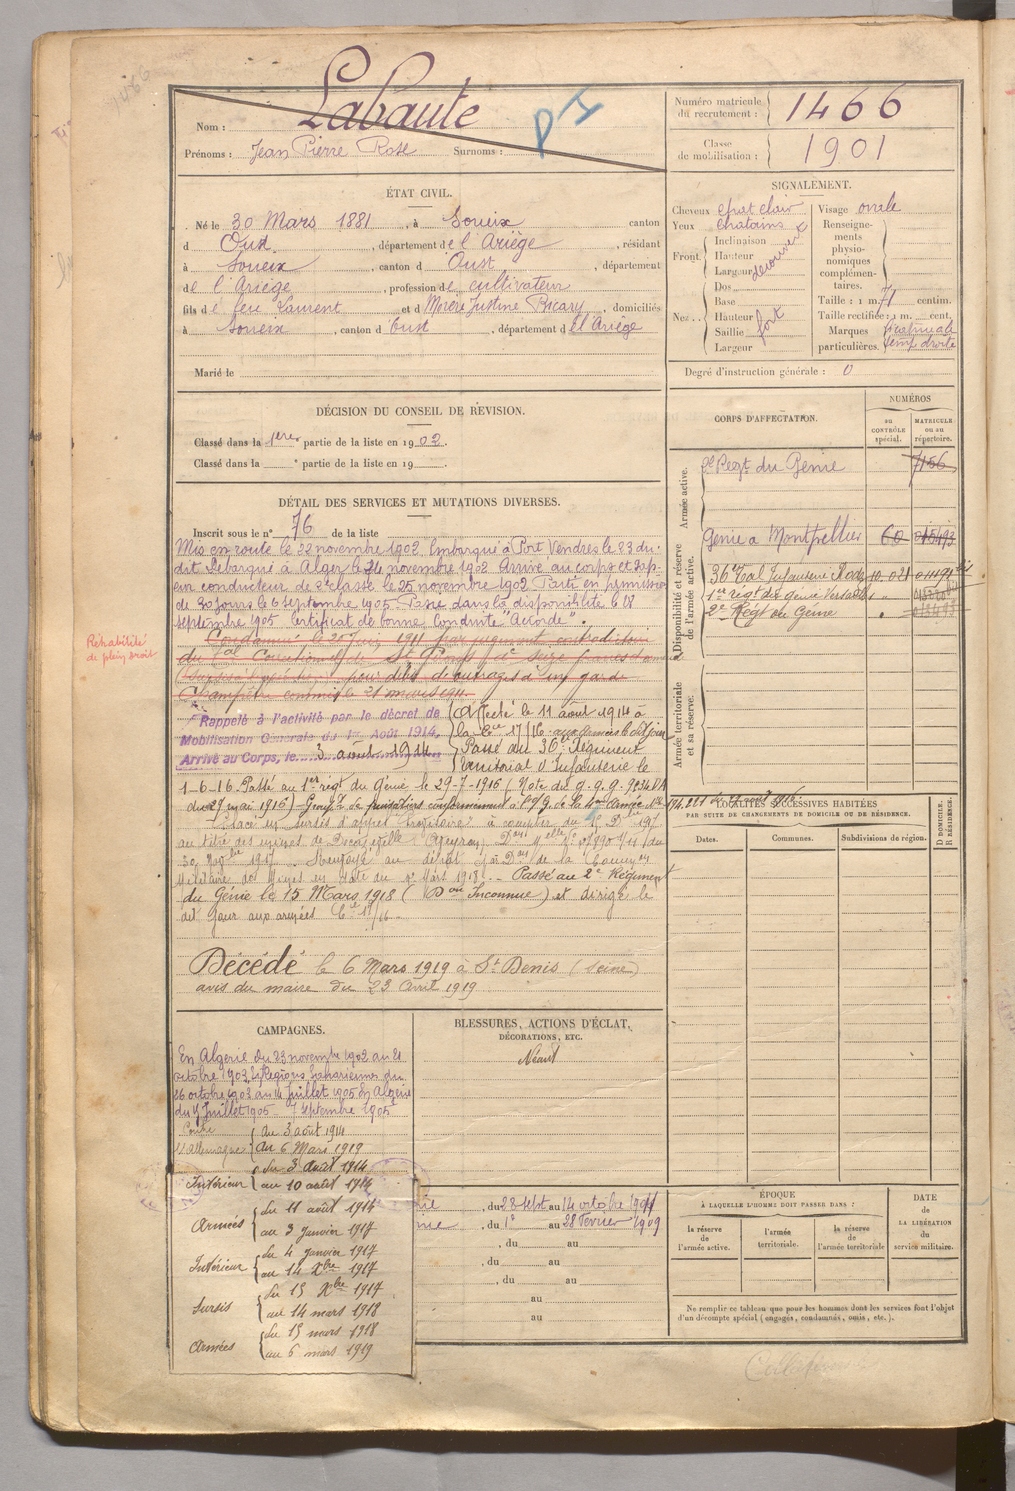 Nom : Labaute
PI
Prénoms : Jean Pierre Rose Surnoms :
Numéro matricule du recrutement : 1466
Classe de mobilisation : 1901
ÉTAT CIVIL.
Né le 30 Mars 1881, à Soueix canton
d Oust, département de l'Ariège, résidant
à Soueix, canton d Oust, département
de l'Ariège, profession de cultivateur
fils de feu Laurent et d Morère Justine, domiciliés
à Soueix, canton d'Oust, département de l'Ariège
Marié le
SIGNALEMENT.
Cheveux chat clair
Yeux chatains
Front. Inclinaison
Hauteur
Largeur
découvert
Nez.. Dos
Base
Hauteur
Saillie
Largeur
fort
Visage ovale
Renseignements physionomiques complémentaires.
Taille : 1 m. 71 centim.
Taille rectifiée : 1 m. cent.
Marques particulières. droite
Degré d'instruction générale : 0
DÉCISION DU CONSEIL DE RÉVISION.
Classé dans la 1ere partie de la liste en 1902.
Classé dans la e partie de la liste en 19 .
CORPS D'AFFECTATION.
NUMÉROS
au CONTRÔLE spécial.
MATRICULE ou au répertoire.
Armée active.
Regt du Génie 7156
Disponibilité et réserve de l'armée active.
Génie à Montpellier 60 015493
36e Tal Infanterie Rodez
1er régt du génie Versailles
2e Régt du Génie
Armée territoriale et sa réserve.
DÉTAIL DES SERVICES ET MUTATIONS DIVERSES.
Inscrit sous le n° 76 de la liste
Mis en route le 22 novembre 1902. Embarqué à Port Vendres le 23 du-
dit Débarqué à Alger le 24 novembre 1902. Arrivé au corps et sap-
eur conducteur de 2e classe le 25 novembre 1902. Parti en permission
de 30 jours le 6 septembre 1905. Passé dans la disponibilité le 18
septembre 1905. Certificat de bonne conduite "Accordé".
Réhabilité
de plein droit
Condamné le 20 1911 par jugement contradictoire
du Tal Correctionnel de St Girons à seize francs d'amende
pour délit d'outrages à un garde
champêtre commis le 21 mars 1911
Rappelé à l'activité par le décret de
Mobilisation Générale du 1er Août 1914.
Arrivé au Corps, le 3 août 1914
Affecté le 11 août 1914 à
la Cie 17/16 aux armées le dit jour
Passé au 36e Régiment
Territorial d'Infanterie le
1-6-16. Passé au 1er régt du Génie le 29-7-1916 (Note du G.Q.G. 9034 DA
du 27 mai 1916)
Placé en sursis d'appel à compter du
au titre des mines de Decazeville (Aveyron)
30 1917 Renvoyé au dépôt de la
1918. Passé au 2e Régiment
du Génie le 15 Mars 1918 (Don Inconnue) et dirigé le
dit jour aux armées Cie 17/16.
Décédé le 6 Mars 1919 à St Denis (Seine)
avis du maire du 23 Avril 1919
LOCALITÉS SUCCESSIVES HABITÉES
PAR SUITE DE CHANGEMENTS DE DOMICILE OU DE RÉSIDENCE.
Dates. Communes. Subdivisions de région. D DOMICILE. R RÉSIDENCE.
CAMPAGNES.
En Algérie du 23 novembre 1902 au 21
octobre 1903. Régions Sahariennes du
26 octobre 1903 au 16 Juillet 1905 En Algérie
du 17 Juillet 1905 7 septembre 1905
Contre
l'Allemagne
du 3 août 1914
au 6 Mars 1919
Intérieur du 3 août 1914
au 10 août 1914
Armées du 11 août 1914
au 3 janvier 1917
Intérieur du 4 janvier 1917
au 14 Xbre 1917
Sursis du 15 Xbre 1917
au 14 mars 1918
Armées du 15 mars 1918
au 6 mars 1919
BLESSURES, ACTIONS D'ÉCLAT,
DÉCORATIONS, ETC.
Néant
, du 28 sept au 14 octobre 1907
, du 1er au 28 Février 1909
, du au
, du au
, du au
au
au
ÉPOQUE
À LAQUELLE L'HOMME DOIT PASSER DANS :
la réserve de l'armée active.
l'armée territoriale.
la réserve de l'armée territoriale
DATE
DE LA LIBÉRATION
DU service militaire.
Ne remplir ce tableau que pour les hommes dont les services font l'objet
d'un décompte spécial (engagés, condamnés, omis, etc.).